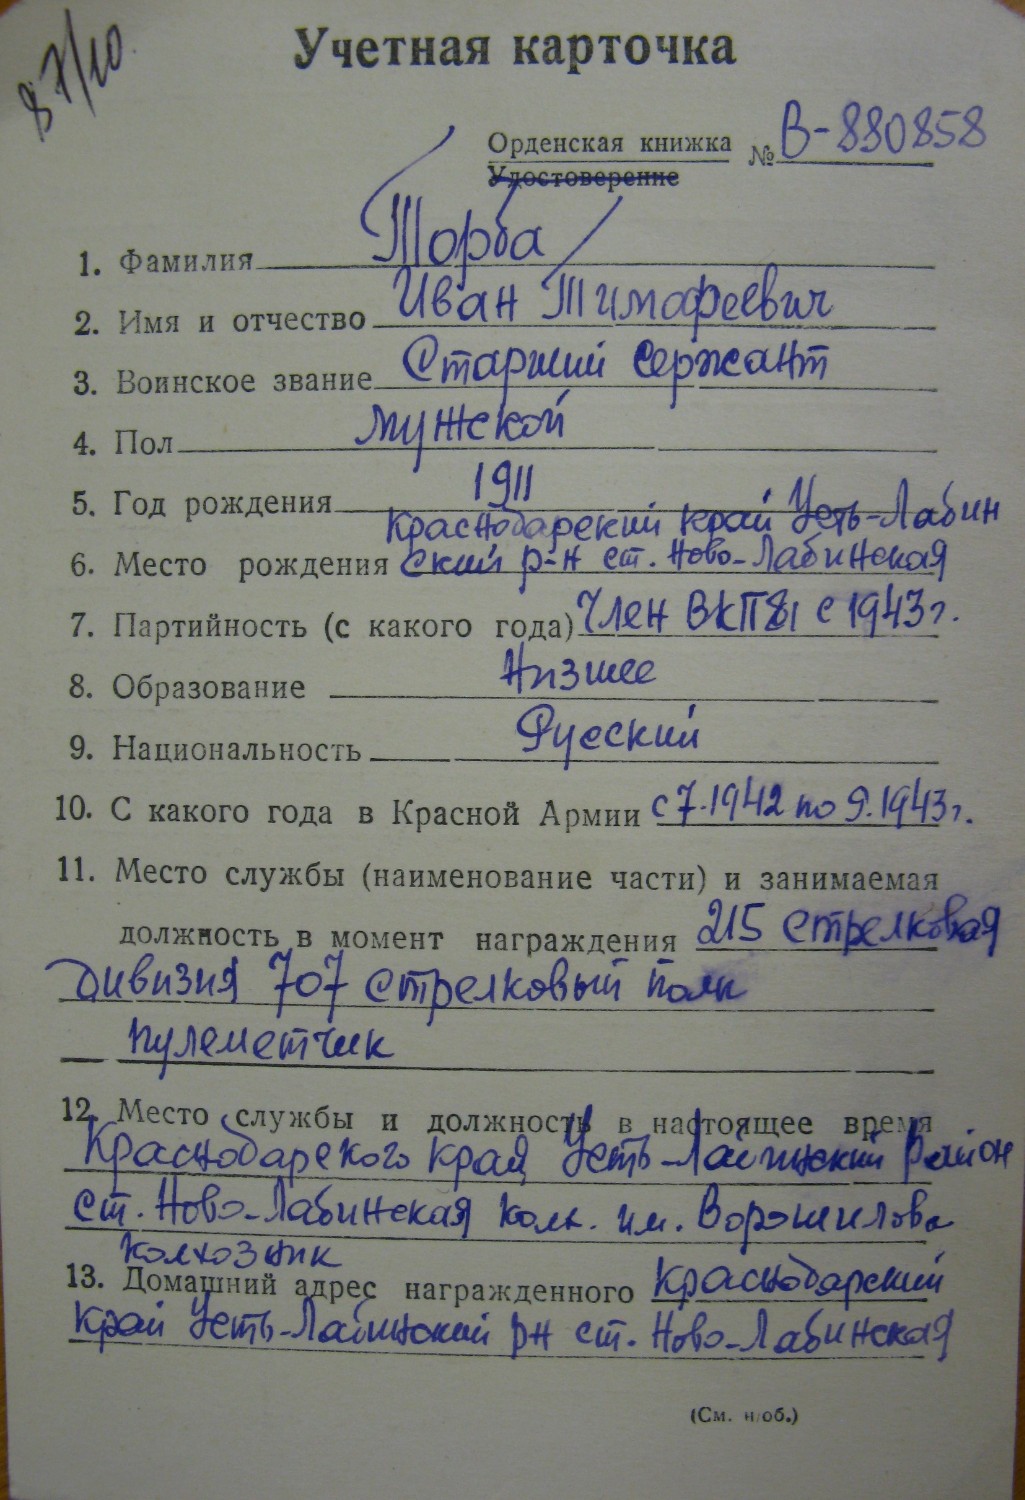 87/10
Учетная карточка
Орденская книжка № В-880858
Удостоверение
1. Фамилия Торба
2. Имя и отчество Иван Тимафеевич
3. Воинское звание Старший сержант
4. Пол мужской
5. Год рождения 1911
Краснодарский край Усть-Лабин
6. Место рождения ский р-н ст. Ново-Лабинская
7. Партийность (с какого года) Член ВКПб с 1943 г.
8. Образование Низшее
9. Национальность Русский
10. С какого года в Красной Армии с 7.1942 по 9.1943 г.
11. Место службы (наименование части) и занимаемая
должность в момент награждения 215 стрелковая
дивизия 707 стрелковый полк
пулеметчик
12. Место службы и должность в настоящее время
Краснодарского край Усть-Лабинский Район
ст. Ново-Лабинская колх. им. Ворошилова
колхозник
13. Домашний адрес награжденного Краснодарский
край Усть-Лабинский рн ст. Ново-Лабинская
(См. н/об.)